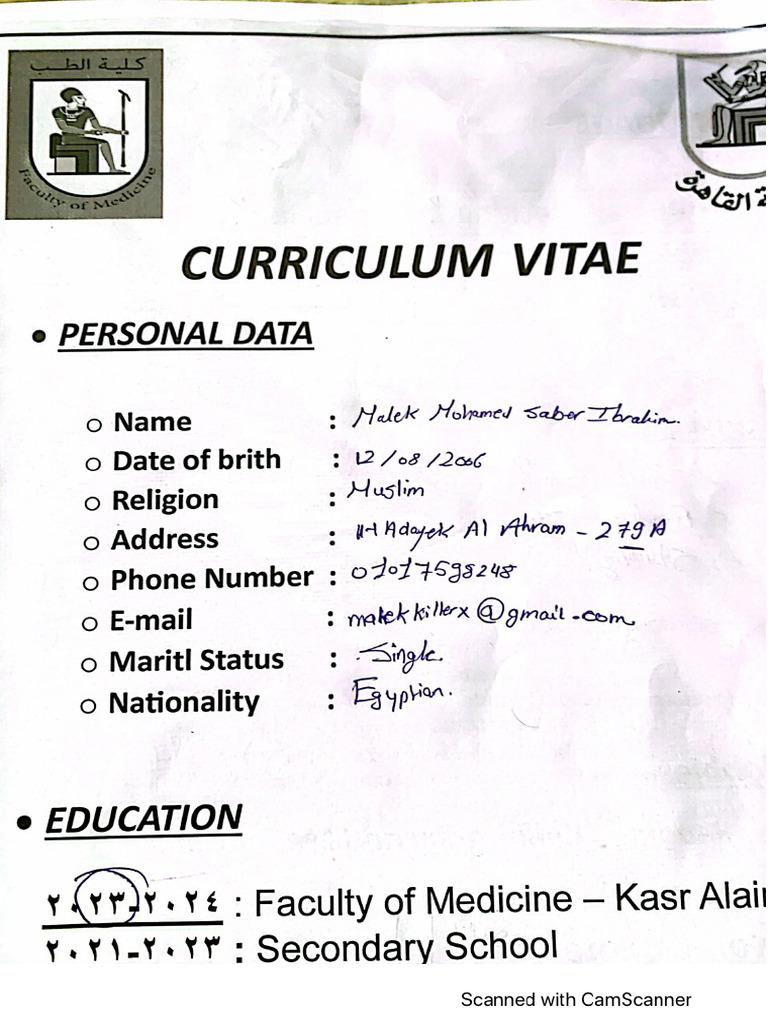 كلية الطب
Faculty of Medicine
القاهرة
CURRICULUM VITAE
• PERSONAL DATA
o Name : Malek Mohamed Saber Ibrahim.
o Date of brith : 12/08/2006
o Religion : Muslim
o Address : Hadayek Al Ahram - 279 A
o Phone Number : 01017598248
o E-mail : malekkillerx@gmail.com
o Maritl Status : Single.
o Nationality : Egyptian.
• EDUCATION
٢٠٢٣-٢٠٢٤ : Faculty of Medicine – Kasr Alain
٢٠٢١-٢٠٢٣ : Secondary School
Scanned with CamScanner